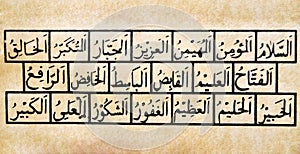 اَلسَّلَامُ اَلْمُؤْمِنُ اَلْمُهَيْمِنُ اَلْعَزِيزُ اَلْجَبَّارُ اَلْمُتَكَبِّرُ اَلْخَالِقُ
اَلْفَتَّاحُ اَلْعَلِيمُ اَلْقَابِضُ اَلْبَاسِطُ اَلْخَافِضُ اَلرَّافِعُ
اَلْخَبِيرُ اَلْحَلِيمُ اَلْعَظِيمُ اَلْغَفُورُ اَلشَّكُورُ اَلْعَلِيُّ اَلْكَبِيرُ